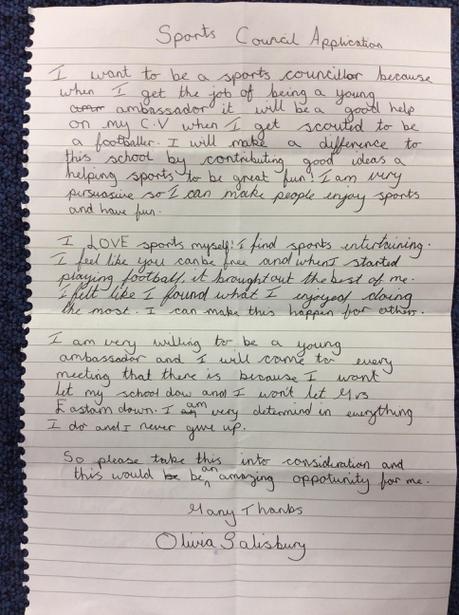 Sports Council Application
I want to be a sports councillor because
when I get the job of being a young
ambassador it will be a good help
on my C.V when I get scouted to be
a footballer. I will make a difference to
this school by contributing good ideas a
helping sports to be great fun! I am very
persuasive so I can make people enjoy sports
and have fun.
I LOVE sports myself! I find sports entertaining.
I feel like you can be free and when I started
playing football it brought out the best of me.
I felt like I found what I enjoyed doing
the most. I can make this happen for others.
I am very willing to be a young
ambassador and I will come to every
meeting that there is because I want
let my school dow and I wont let Mrs
Eastam down. I am very determind in everything
I do and I never give up.
So please take this into consideration and
this would be an amazing oppotunity for me.
Many Thanks
Olivia Salisbury